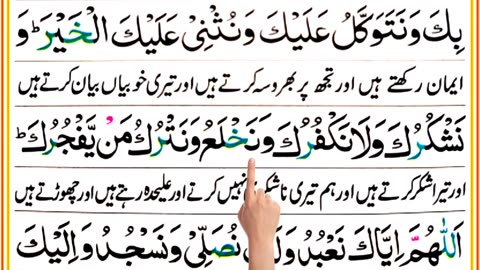 بِكَ وَنَتَوَكَّلُ عَلَيْكَ وَنُثْنِىْ عَلَيْكَ الْخَيْرَ ؕ وَ
ایمان رکھتے ہیں اور تجھ پر بھروسہ کرتے ہیں اور تیری خوبیاں بیان کرتے ہیں
نَشْكُرُكَ وَلَا نَكْفُرُكَ وَنَخْلَعُ وَنَتْرُكُ مَنْ يَّفْجُرُكَ ؕ
اور تیرا شکر کرتے ہیں اور ہم تیری نہیں کرتے اور علیحدہ رہتے ہیں اور چھوڑتے ہیں
اَللّٰهُمَّ اِيَّاكَ نَعْبُدُ نُصَلِّىْ وَنَسْجُدُ وَاِلَيْكَ